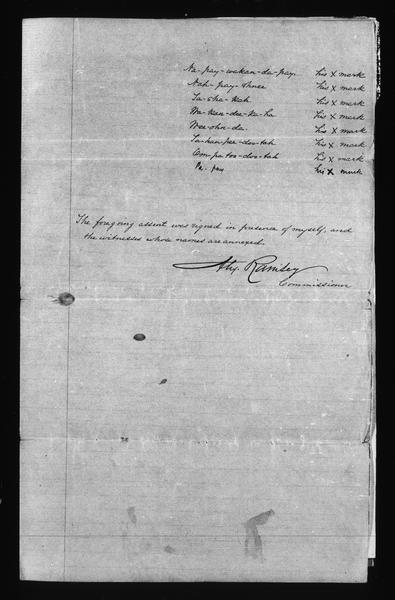 Na-pay-wakan-da-pay. his X mark
Nah-pay-shnee his X mark
Ta-sha-kah his X mark
Wa-kan-dee-ka-ha his X mark
Wee-ohn-da. his X mark
Ta-kan-pee-doo-tah his X mark
Om-pa-too-doo-tah his X mark
his X mark
The foregoing assent was signed in presence of myself, and
the witnesses whose names are annexed.
Alex. Ramsey
Commissioner